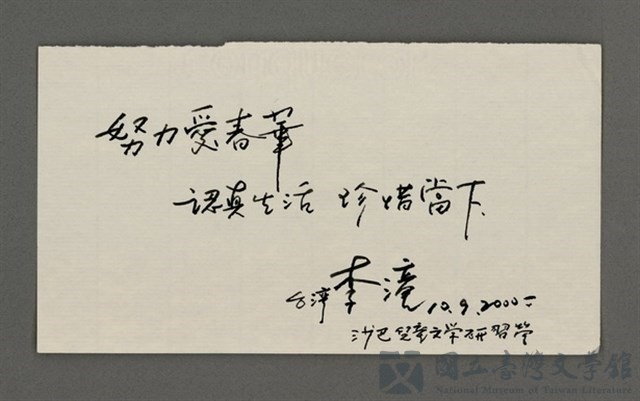 努力愛春華
認真生活 珍惜當下
台灣 李潼 10.9.2000
沙巴兒童文学研習營
國立臺灣文學館
National Museum of Taiwan Literature